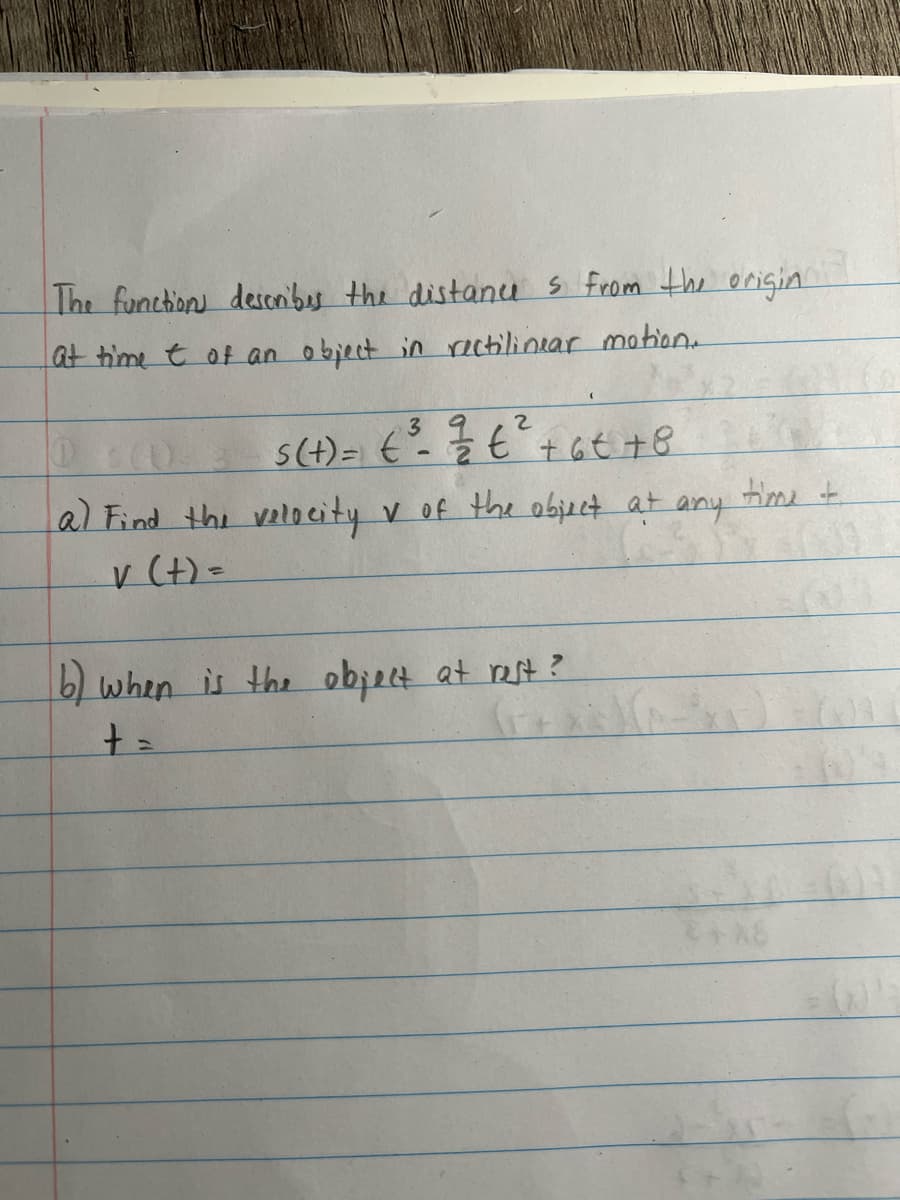 The function describes the distance s from the origin
at time t of an object in rectilinear motion.
s(t) = t³ - 9/2 t² + 6t + 8
a) Find the velocity v of the object at any time t
v (t) =
b) when is the object at rest?
t =